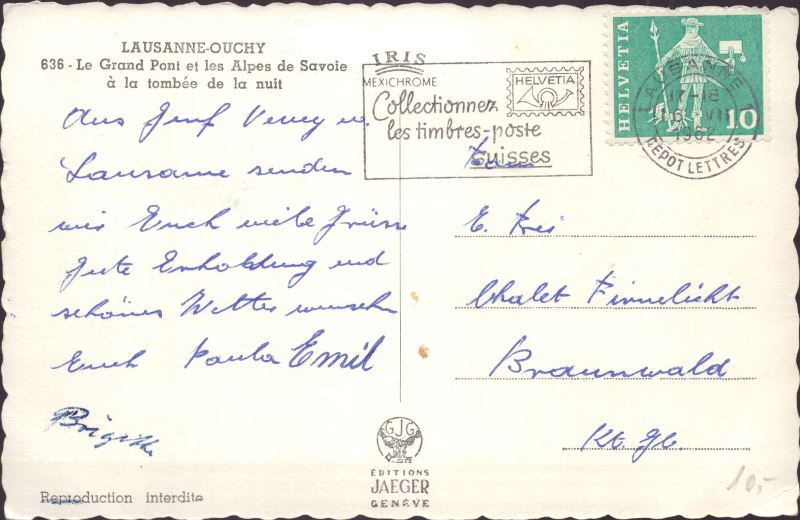 LAUSANNE-OUCHY
636 - Le Grand Pont et les Alpes de Savoie
à la tombée de la nuit
IRIS
MEXICHROME
Collectionnez
les timbres-poste
suisses
HELVETIA
HELVETIA
10
LAUSANNE 1
17-18
16. VII
1962
DEPOT LETTRES
Aus Genf Vevey u.
Lausanne senden
wir Euch viele Grüsse
Gute Erholung und
schönes Wetter wünschen
Euch Paula Emil
Brigitte
Fam
E. Frei
Chalet Firnelicht
Braunwald
Kt. Gl.
GJG
EDITIONS
JAEGER
GENÈVE
Reproduction interdite
10.-